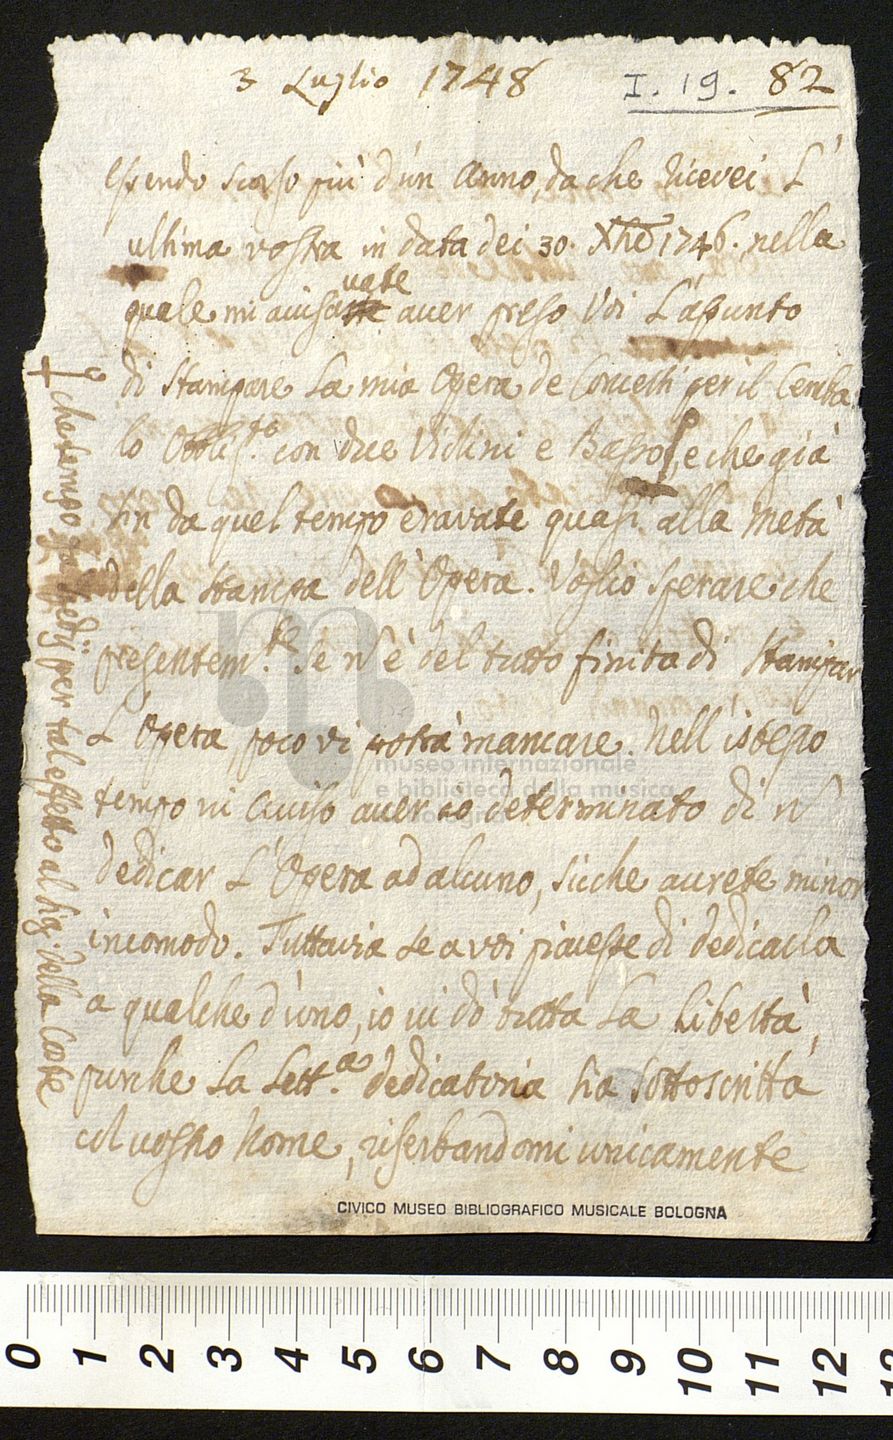 3 Luglio 1748
I. 19. 82
Essendo scorso più d'un Anno, da che ricevei L'
ultima vostra in data dei 30. Xbre 1746. nella
quale mi avisavate aver preso Voi L'asunto
di stampare La mia Opera de Concerti per il Cemba
lo Obblig.to con due Violini e Basso, e che già
sin da quel tempo eravate quasi alla metà
della stampa dell'Opera. Voglio sperare che
presentem.te se n'è del tutto finita di stampar
L'Opera poco vi potrà mancare. Nell'istesso
tempo vi aviso aver io determinato di n'
dedicar L'Opera ad alcuno, sicche avrete minor
incomodo. Tuttavia se a voi piacesse di dedicarla
a qualche d'uno, io vi dò tutta La Libertà,
purche La Lett.a dedicatoria sia sottoscritta
col vostro Nome, riserbandomi unicamente
che tempo fa diedi per tal effetto al Sig. della Corte
museo internazionale
e biblioteca della musica
CIVICO MUSEO BIBLIOGRAFICO MUSICALE BOLOGNA
0 1 2 3 4 5 6 7 8 9 10 11 12